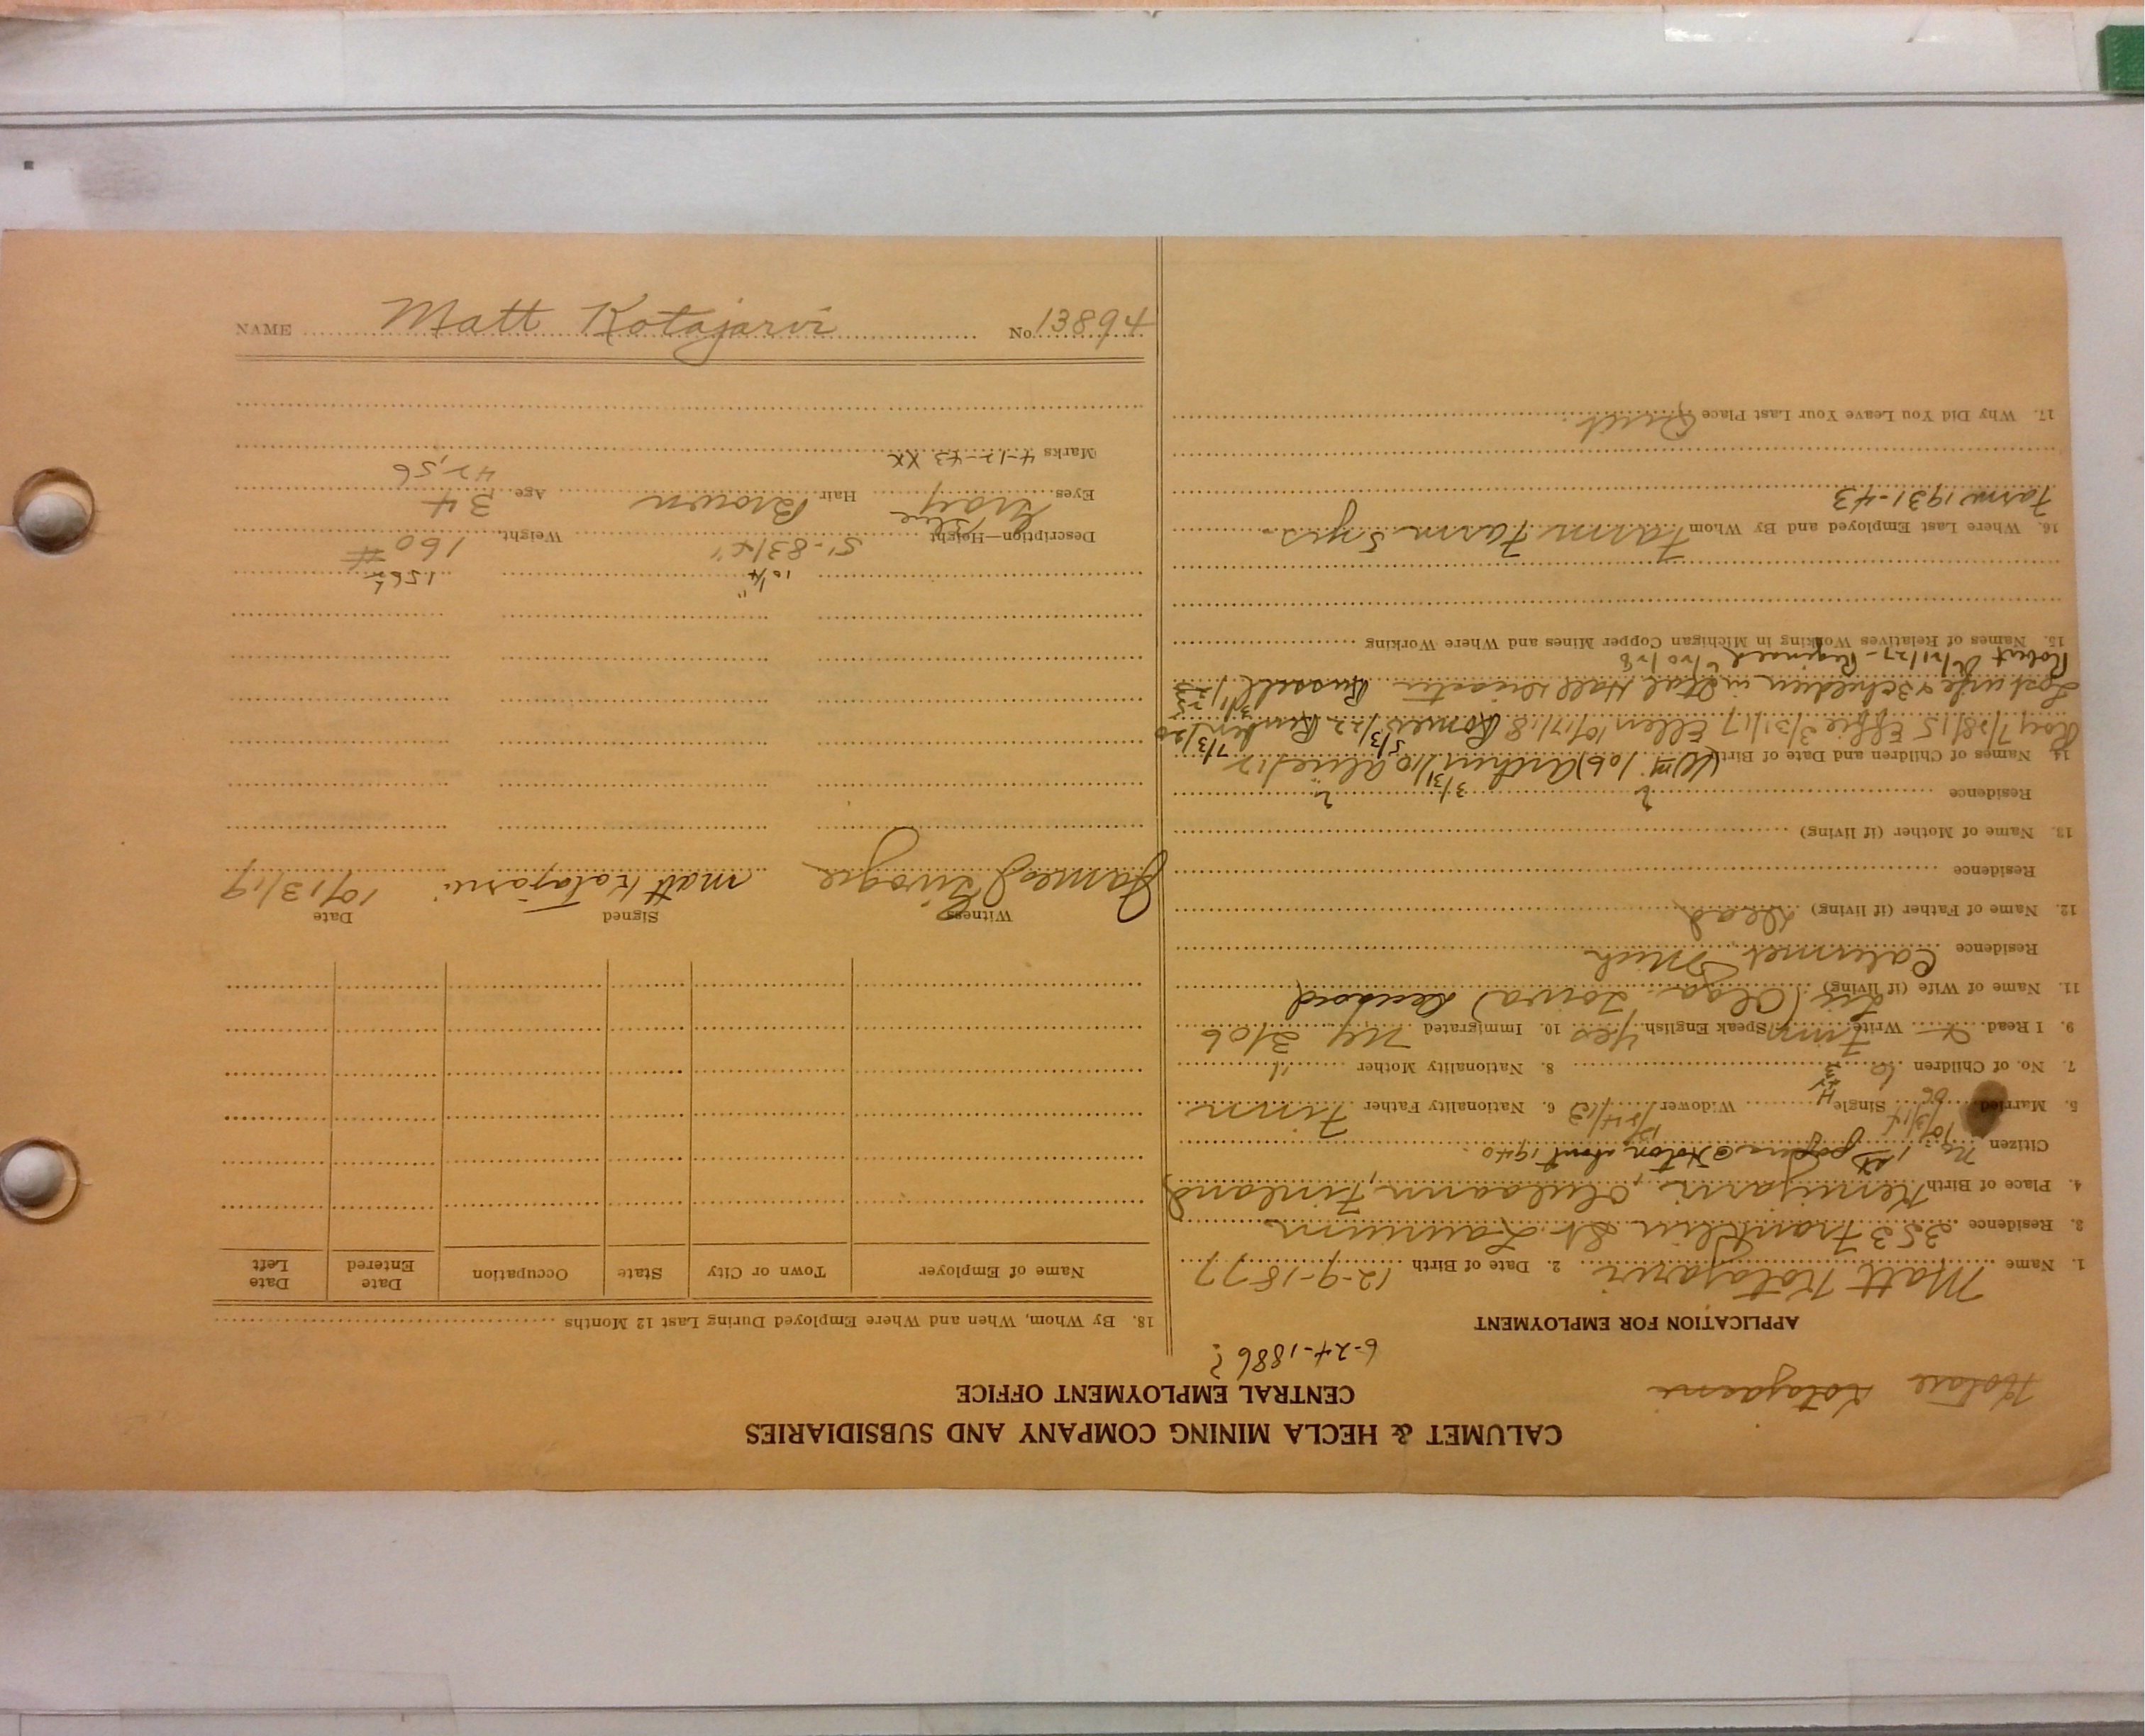 CALUMET & HECLA MINING COMPANY AND SUBSIDIARIES
CENTRAL EMPLOYMENT OFFICE
Kotajarvi
6-24-1886?
APPLICATION FOR EMPLOYMENT
1. Name Matt Kotajarvi 2. Date of Birth 12-9-1877
3. Residence 353 Franklin St. Laurium
4. Place of Birth Kemijarvi, Finland
Citizen no. 1st papers about 1940.
5. Married 10/3/14 Single Widower 12/24/13 6. Nationality Father Finn
7. No. of Children 6 8. Nationality Mother "
9. I Read Write Finn Speak English yes 10. Immigrated NY 3/06
11. Name of Wife (if living) (Olga Deceased)
Residence Calumet Mich
12. Name of Father (if living) dead
Residence
13. Name of Mother (if living)
Residence
14. Names of Children and Date of Birth (Wm. /06) 3/31/10
Roy 7/28/15 Effie 3/31/17 Ellen 10/17/18 5/3/22 Ruben 7/3/20
Lost wife & children in Ital Hall disaster Russell
Robert Reginard
15. Names of Relatives Working in Michigan Copper Mines and Where Working
16. Where Last Employed and By Whom Farm Farm 5 yrs.
Farm 1931-43
17. Why Did You Leave Your Last Place Quit.
18. By Whom, When and Where Employed During Last 12 Months
Name of Employer Town or City State Occupation Date Entered Date Left
Witness Signed Date
James Matt Kotajarvi 10/13/19
10 1/4" 156 1/2
Description—Height 5'-8 3/4" Weight 160 #
Blue
Eyes Gray Hair Brown Age 34
42, 56
Marks 4-12-43 XX
NAME Matt Kotajarvi No. 13894